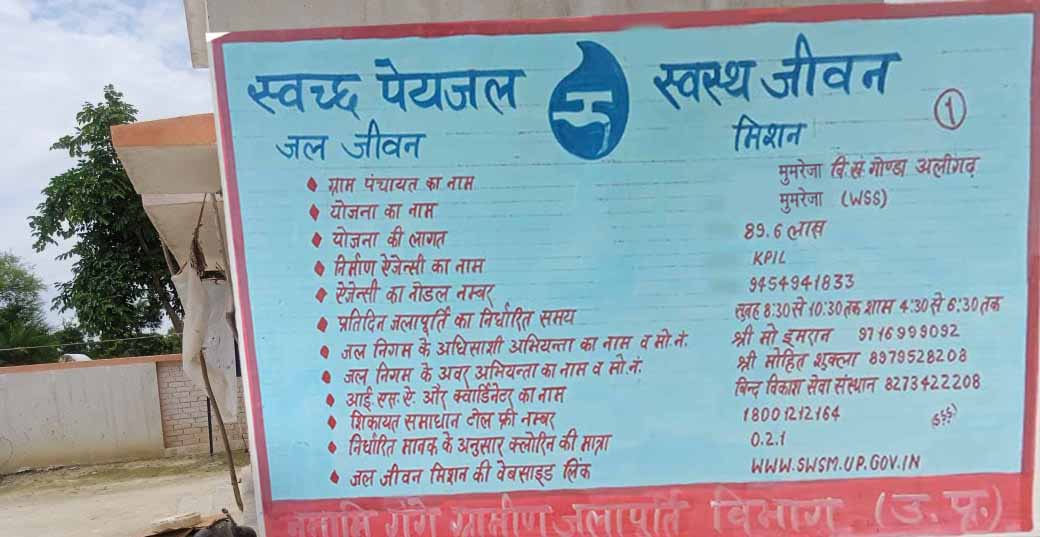 स्वच्छ पेयजल स्वस्थ जीवन
जल जीवन मिशन 1
ग्राम पंचायत का नाम मुमरेजा वि.ख. गोण्डा अलीगढ़
योजना का नाम मुमरेजा (WSS)
योजना की लागत 89.6 लाख
निर्माण ऐजेन्सी का नाम KPIL
ऐजेन्सी का नोडल नम्बर 9454941833
प्रतिदिन जलापूर्ति का निर्धारित समय सुबह 8:30 से 10:30 तक शाम 4:30 से 6:30 तक
जल निगम के अधिसाशी अभियन्ता का नाम व मो.नं. श्री मो इमरान 9716999092
जल निगम के अवर अभियन्ता का नाम व मो.नं. श्री मोहित शुक्ला 8979528208
आई.एस.ऐ. और क्वार्डिनेटर का नाम विन्द विकाश सेवा संस्थान 8273422208
शिकायत समाधान टोल फ्री नम्बर 18001212164
निर्धारित मानक के अनुसार क्लोरिन की मात्रा 0.2.1
जल जीवन मिशन की वेबसाइड लिंक WWW.SWSM.UP.GOV.IN
नमामि गंगे ग्रामीण जलापूर्ति विभाग (उ.प्र.)